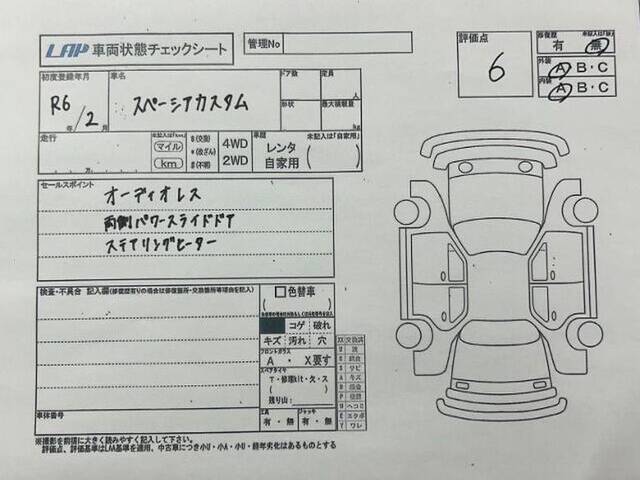 LAA 車両状態チェックシート
管理No
評価点
6
修復歴
有 無
外装 A B・C
内装 A B・C
初度登録年月
R6年/2月
車名
スペーシアカスタム
ドア数
定員
人
形状
最大積載量
kg
走行
マイル
km
$(交換)
*(改ざん)
#(不明)
4WD
2WD
車歴
未記入は「自家用」
レンタ
自家用
セールスポイント
オーディオレス
両側パワースライドドア
ステアリングヒーター
検査・不具合 記入欄(修復歴有りの場合は修復箇所・交換箇所等理由を記入)
色替車
コゲ 破れ
キズ 汚れ 穴
フロントガラス
A ・ X要す
スペアタイヤ
T・修理kit・欠・ス
残り山:
工具
有・無
ジャッキ
有・無
XX 交換済
S サビ
A キズ
U ヘコミ
Y ワレ
車体番号
※撮影を前提に大きく読みやすく記入して下さい。
評価点、評価基準はLAA基準を適用、中古車につき小U・小A・小U・経年劣化はあるものとする